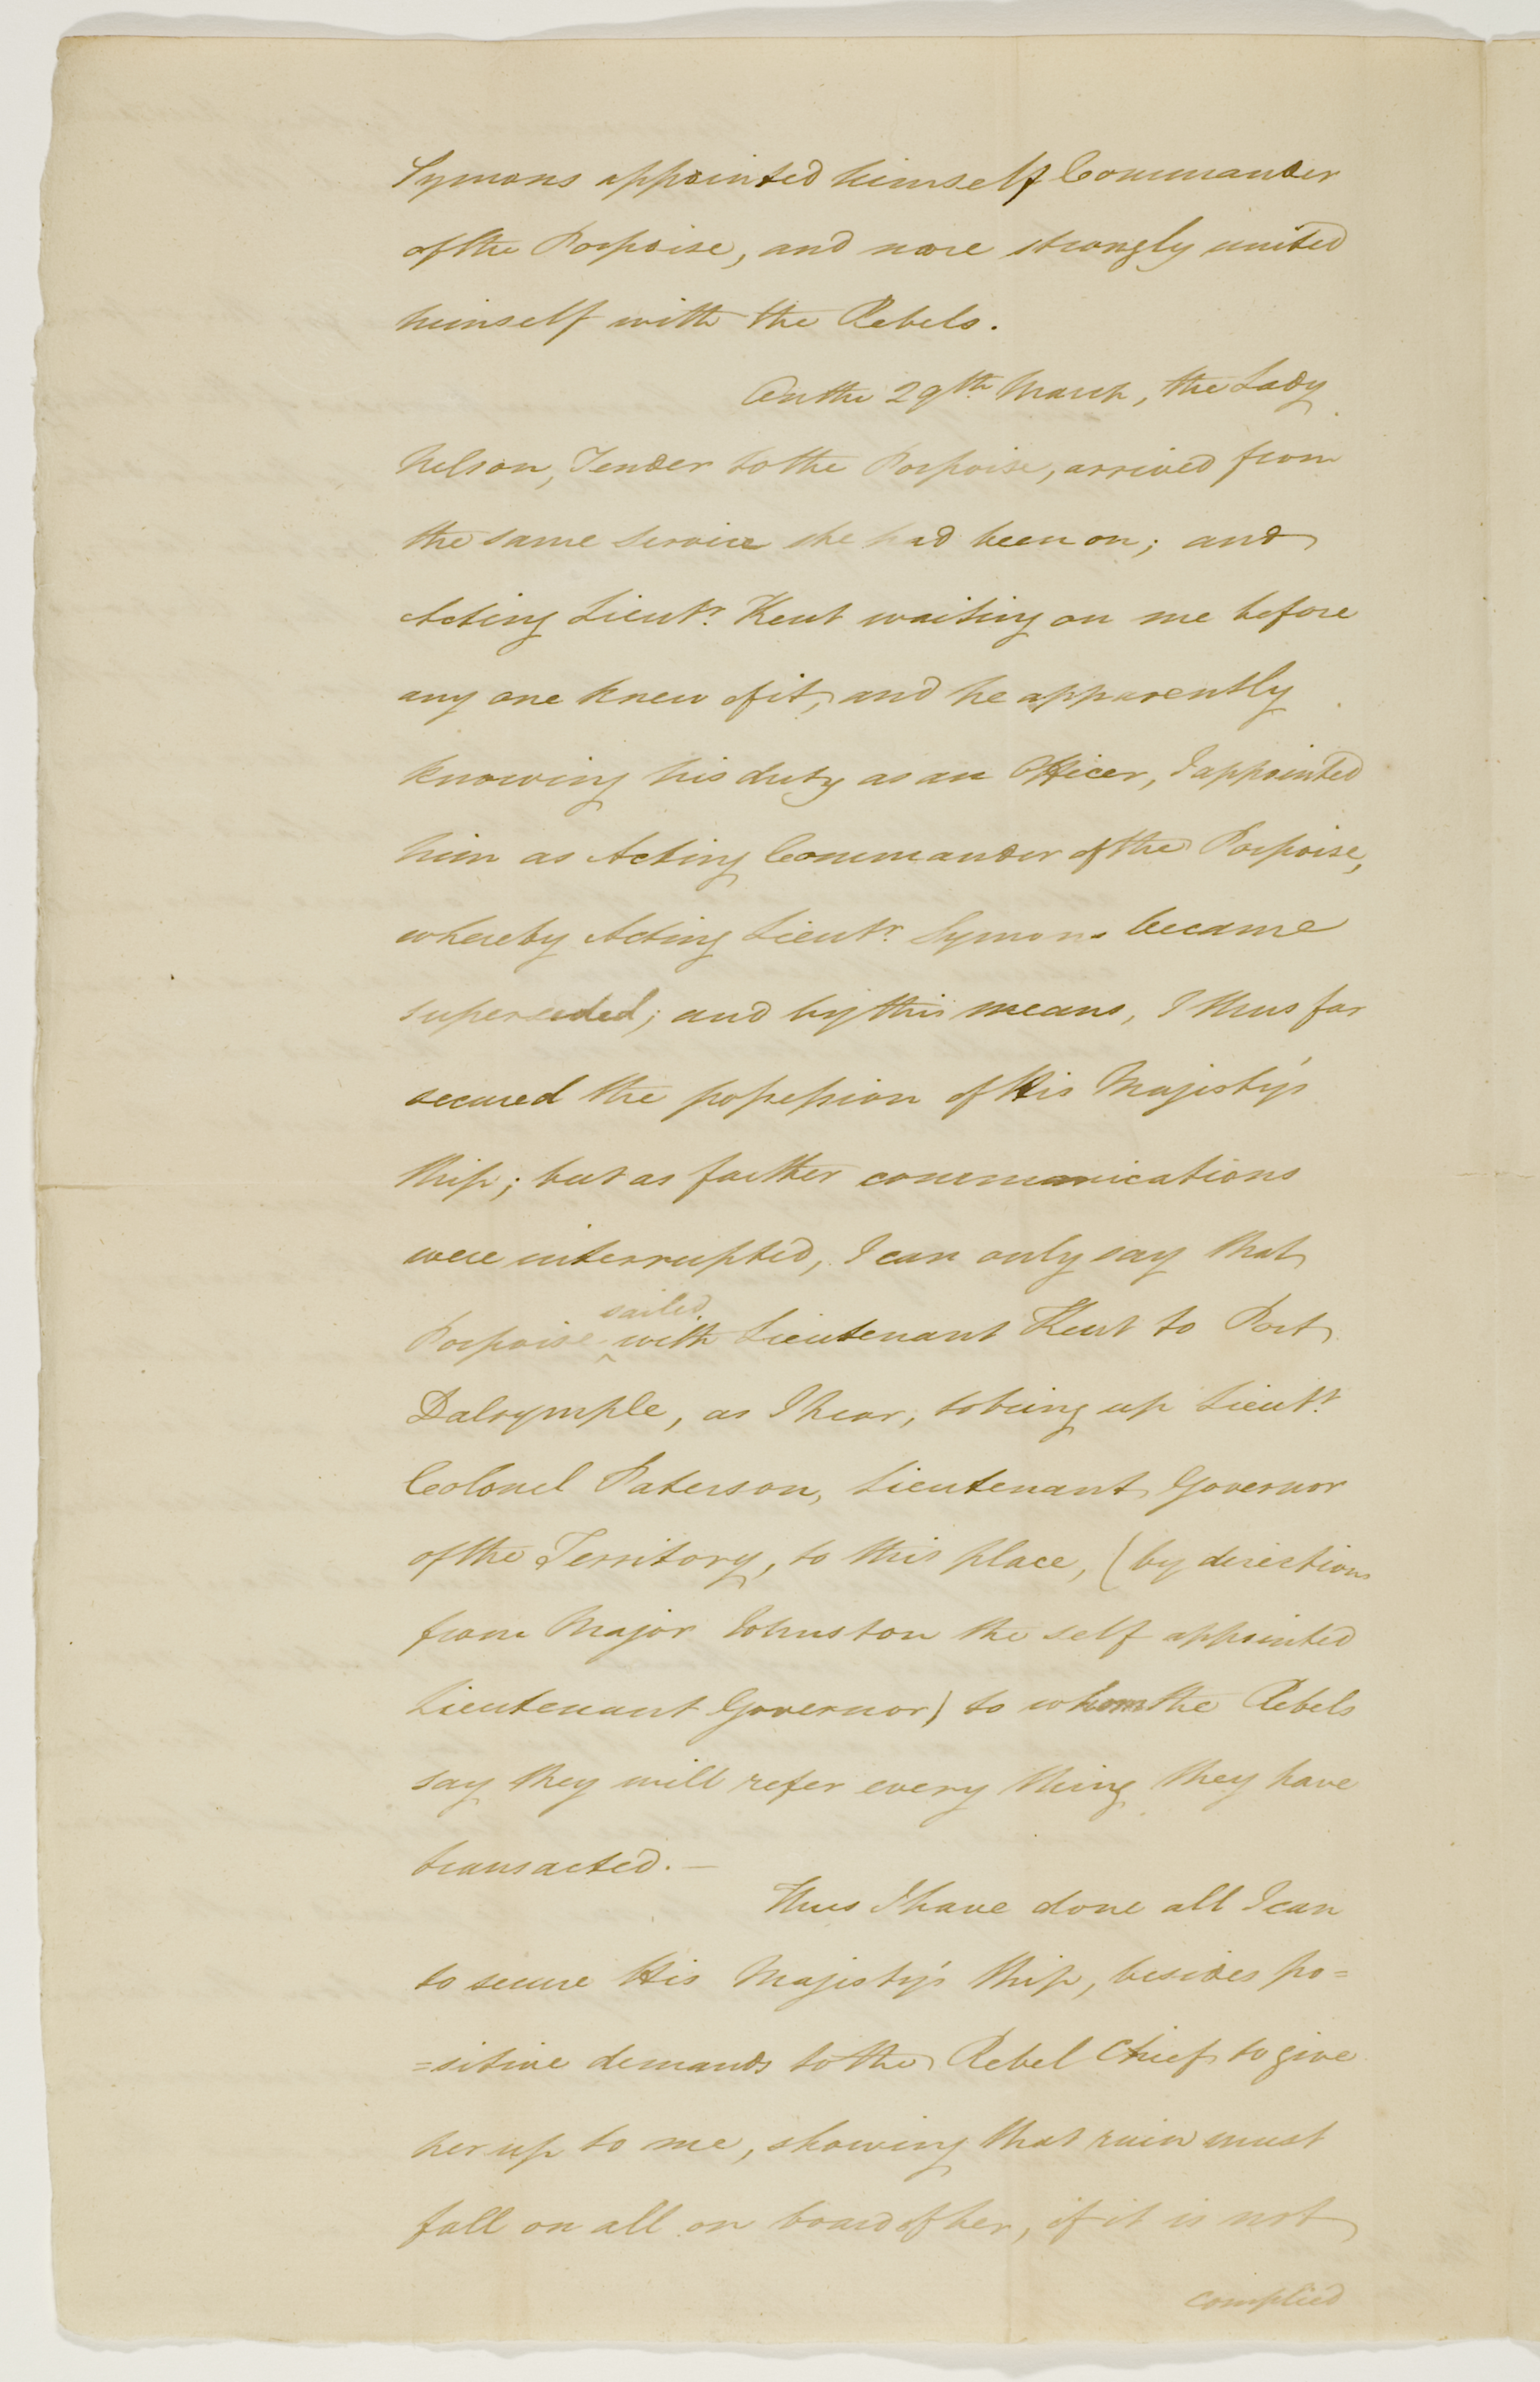 Symons appointed himself Commander
of the Porpoise, and more strongly united
himself with the Rebels.
On the 29th. March, the Lady
Nelson, Tender to the Porpoise, arrived from
the same service she had been on; and
Acting Lieutt. Kent waiting on me before
any one knew of it, and he apparently
knowing his duty as an Officer, I appointed
him as Acting Commander of the Porpoise,
whereby Acting Lieutt. Symons became
superseded; and by this means, I thus far
secured the possession of His Majesty's
Ship; but as farther communications
were interrupted, I can only say that
sailed
Porpoise ^ with Lieutenant Kent to Port
Dalrymple, as I hear, to bring up Lieutt.
Colonel Paterson, Lieutenant Governor
of the Territory, to this place, (by directions
from Major Johnston the self appointed
Lieutenant Governor) to whom the Rebels
say they will refer every thing they have
transacted. —
Thus I have done all I can
to secure His Majesty's Ship, besides po=
=sitive demands to the Rebel Chief to give
her up to me, showing that ruin must
fall on all on board of her, if it is not
complied